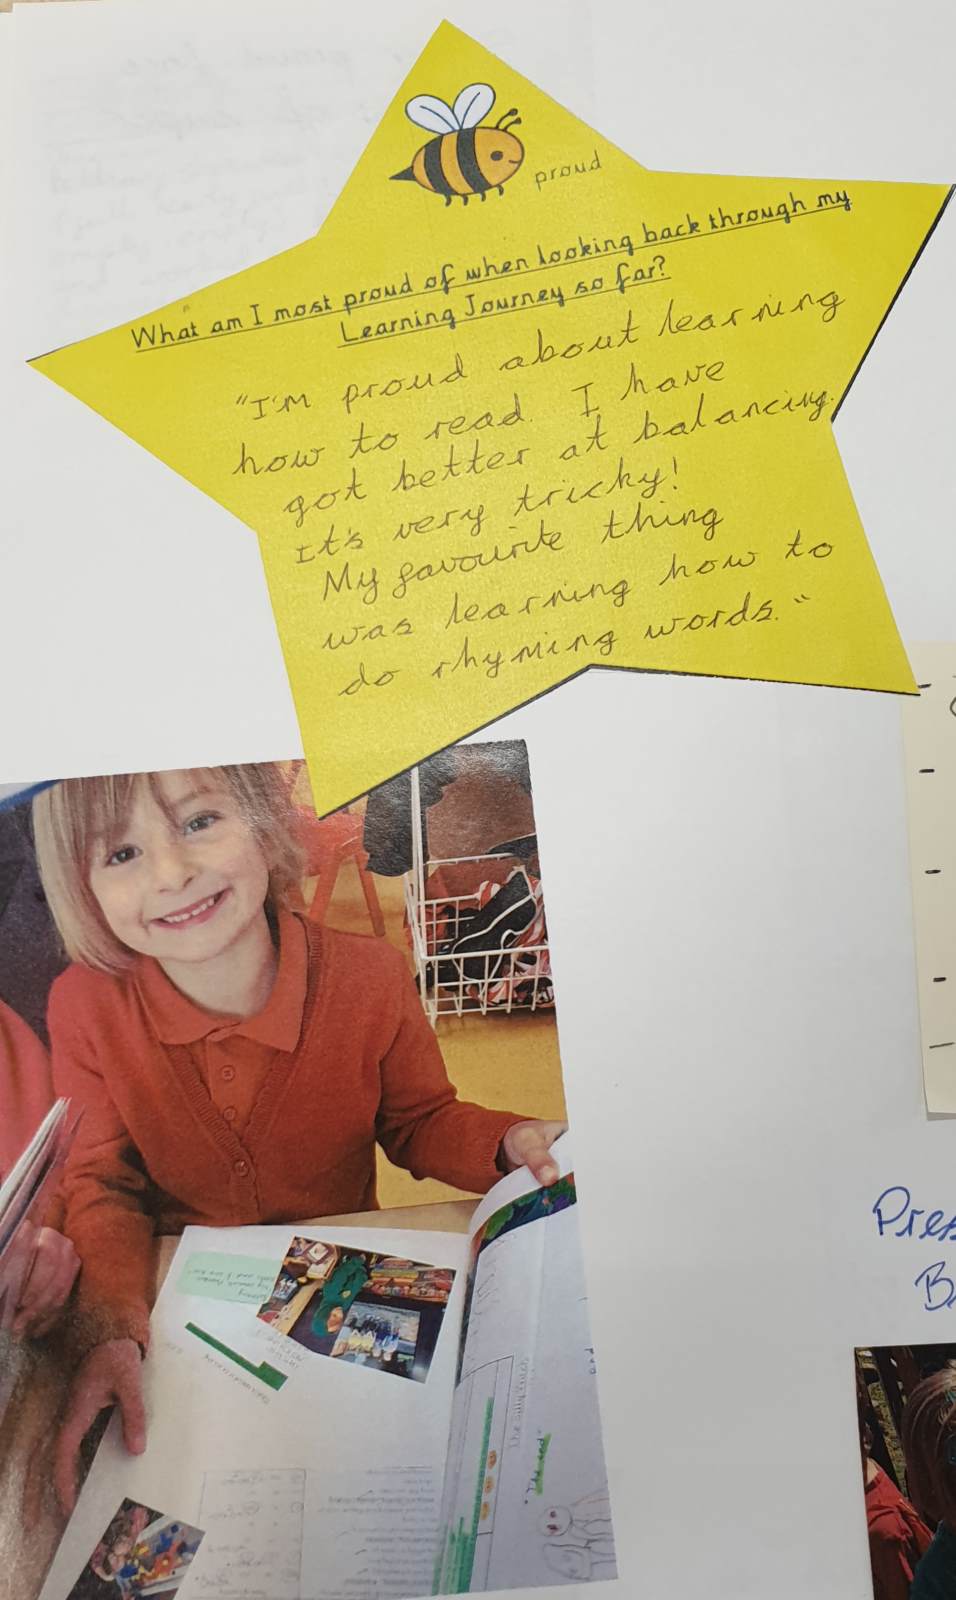 proud
What am I most proud of when looking back through my
Learning Journey so far?
"I'm proud about learning
how to read. I have
got better at balancing.
It's very tricky!
My favourite thing
was learning how to
do rhyming words."
"The end"